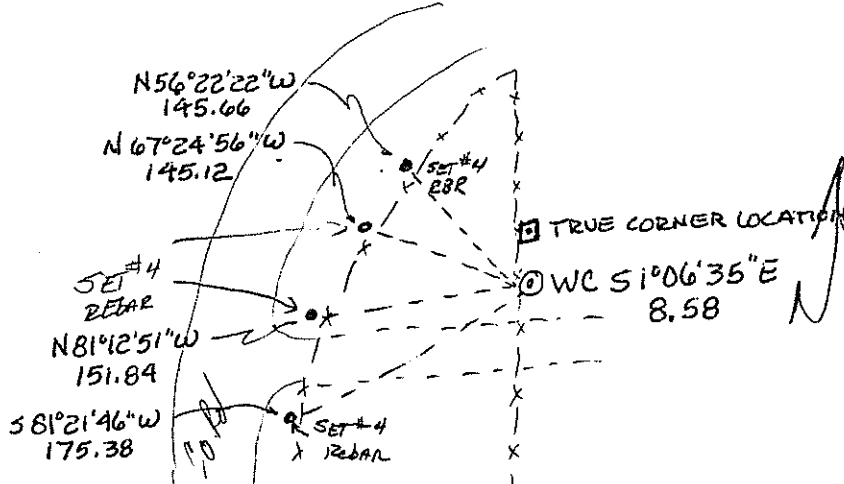 N56°22'22"W
145.66
N67°24'56"W
145.12
SET #4
RBR
TRUE CORNER LOCATION
WC S1°06'35"E
8.58
SET #4
REBAR
N81°12'51"W
151.84
S81°21'46"W
175.38
SET #4
REBAR
Co Rd
N